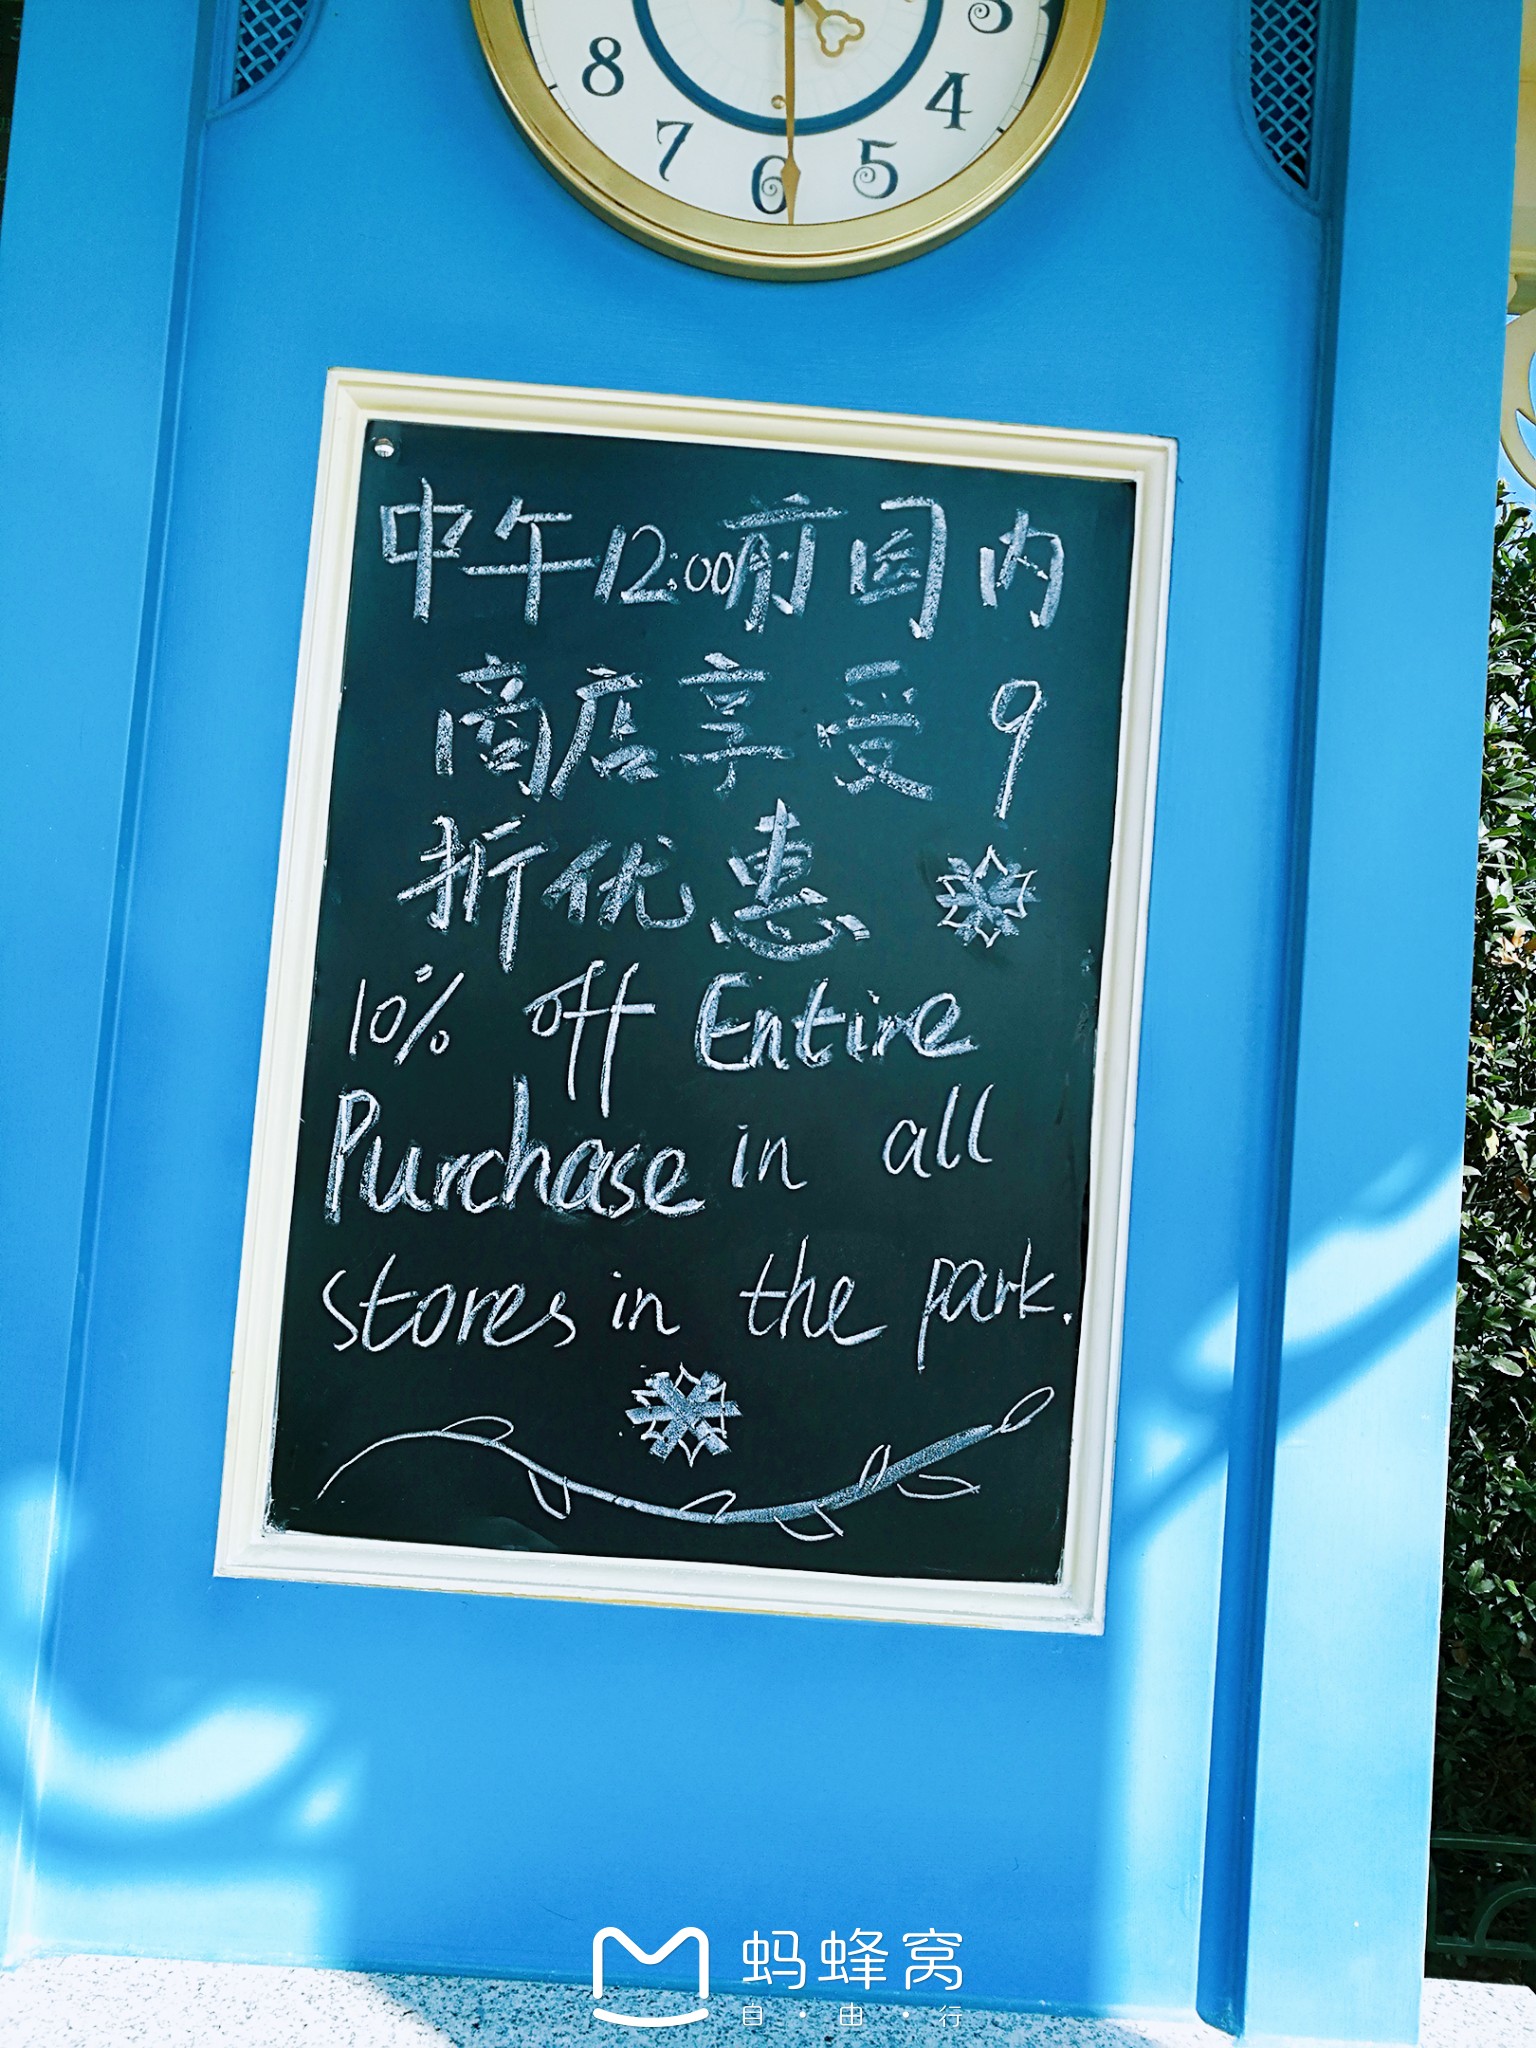 8 7 6 5 4 3
中午12:00前园内
商店享受9
折优惠
10% off Entire
Purchase in all
stores in the park.
蚂蜂窝
自·由·行